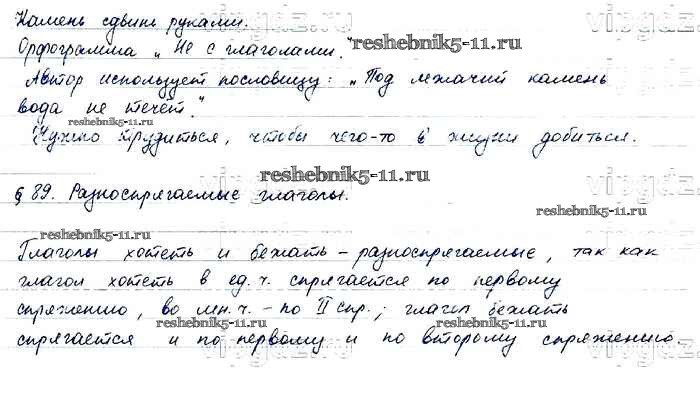 Камень сдвинь руками.
Орфограмма „Не с глаголами."
Автор использует пословицу: „Под лежачий камень
вода не течёт."
Нужно трудиться, чтобы чего-то в жизни добиться.
§ 89. Разноспрягаемые глаголы.
Глаголы хотеть и бежать – разноспрягаемые, так как
глагол хотеть в ед. ч. спрягается по первому
спряжению, во мн. ч. – по II спр.; глагол бежать
спрягается и по первому и по второму спряжению.
reshebnik5-11.ru
reshebnik5-11.ru
reshebnik5-11.ru
reshebnik5-11.ru
reshebnik5-11.ru
reshebnik5-11.ru
reshebnik5-11.ru
vipgdz
vipgdz
vipgdz
vipgdz.ru